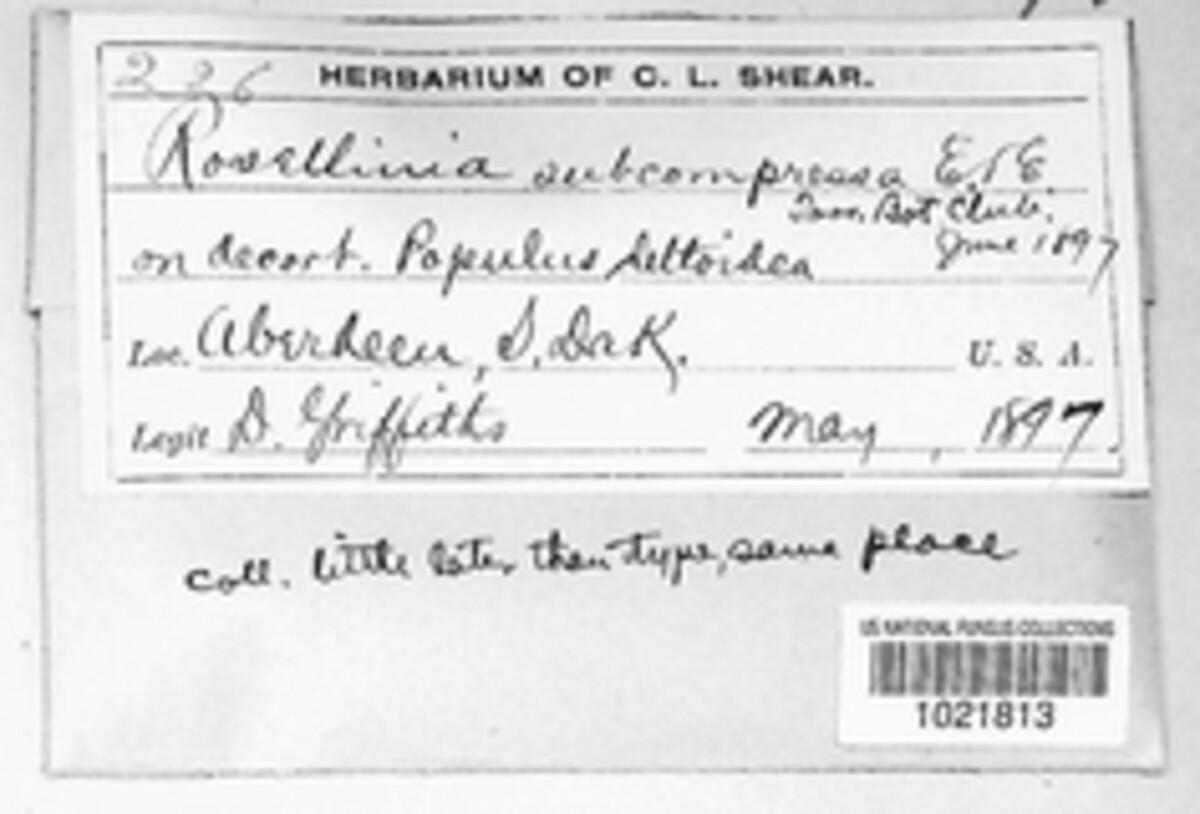 226 HERBARIUM OF C. L. SHEAR.
Rosellinia subcompressa E. & E.
Bot Club.
June 1897
on decort. Populus deltoidea
Loc. Aberdeen, S. Dak. U. S. A.
Legit D. Griffiths May, 1897.
coll. little later than type, same place
US NATIONAL FUNGUS COLLECTIONS
1021813